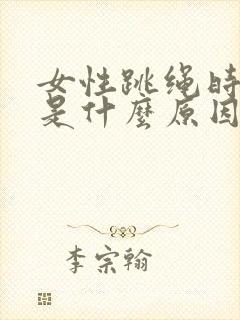 女性跳绳时
是什麼原因
李宗翰